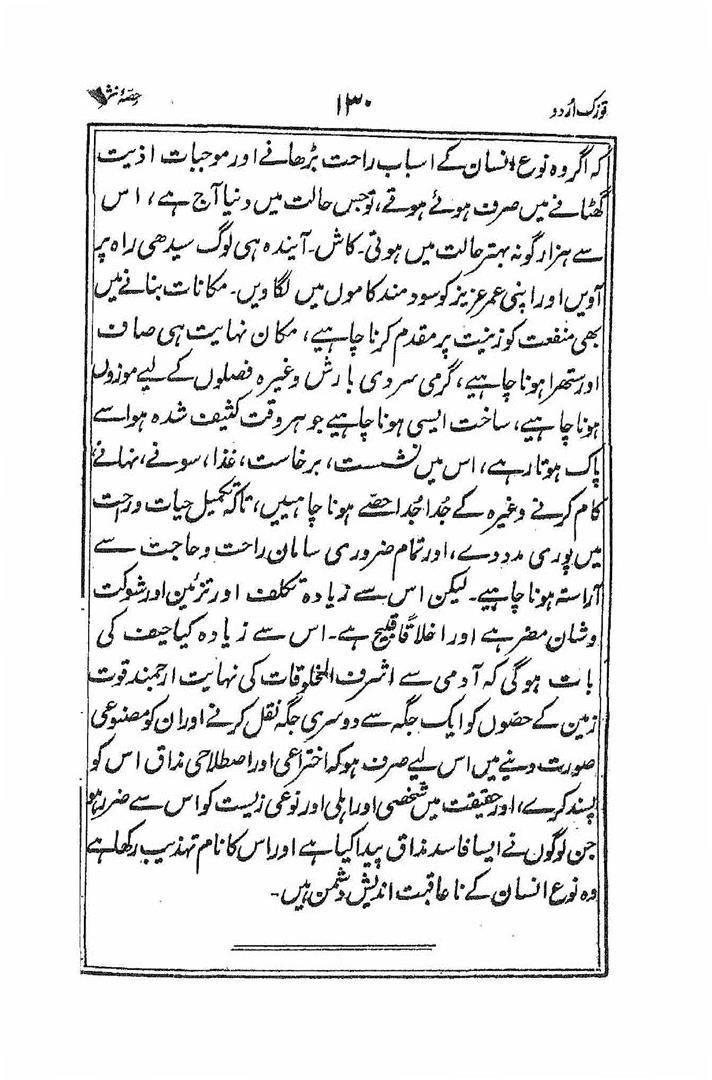 تزک اردو ۱۳۰ حصۂ نثر
کہ اگر وہ نوع انسان کے اسباب راحت بڑھانے اور موجبات اذیت
گھٹانے میں صرف ہوئے ہوتے، تو جس حالت میں دنیا آج ہے، اس
سے ہزار گونہ بہتر حالت میں ہوتی۔ کاش۔ آیندہ ہی لوگ سیدھی راہ پر
آویں اور اپنی عمر عزیز کو سود مند کاموں میں لگاویں۔ مکانات بنانے میں
بھی منفعت کو زینت پر مقدم کرنا چاہیے، مکان نہایت ہی صاف
اور ستھرا ہونا چاہیے، گرمی سردی بارش وغیرہ فصلوں کے لیے موزوں
ہونا چاہیے، ساخت ایسی ہونا چاہیے جو ہر وقت کثیف شدہ ہوا سے
پاک ہوتا رہے، اس میں نشست، برخاست، غذا، سونے، نہانے،
کام کرنے وغیرہ کے جُدا جُدا حصّے ہونا چاہییں، تاکہ تکمیل حیات و راحت
میں پوری مدد دے، اور تمام ضروری سامان راحت و حاجت سے
آراستہ ہونا چاہیے۔ لیکن اس سے زیادہ تکلف اور تزئین اور شوکت
و شان مضر ہے اور اخلاقًا قبیح ہے۔ اس سے زیادہ کیا حیف کی
بات ہوگی کہ آدمی سے اشرف المخلوقات کی نہایت ارجمند قوت
زمین کے حصّوں کو ایک جگہ سے دوسری جگہ نقل کرنے اور ان کو مصنوعی
صورت دینے میں اس لیے صرف ہو کہ اختراعی اور اصطلاحی مذاق اس کو
پسند کرے، اور حقیقت میں شخصی اور اہلی اور نوعی زیست کو اس سے ضرر ہو
جن لوگوں نے ایسا فاسد مذاق پیدا کیا ہے اور اس کا نام تہذیب رکھا ہے
وہ نوع انسان کے نا عاقبت اندیش دشمن ہیں۔